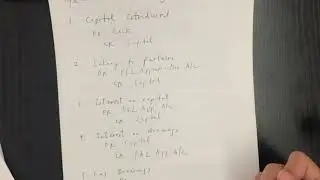 1. Capital Introduced
DR Bank
CR Capital
2. Salary to partners
DR P&L Appropriation A/C
CR Capital
3. Interest on capital
DR P&L App A/C
CR Capital
4. Interest on drawings
DR Capital
CR P&L App A/C
5. Drawings
DR